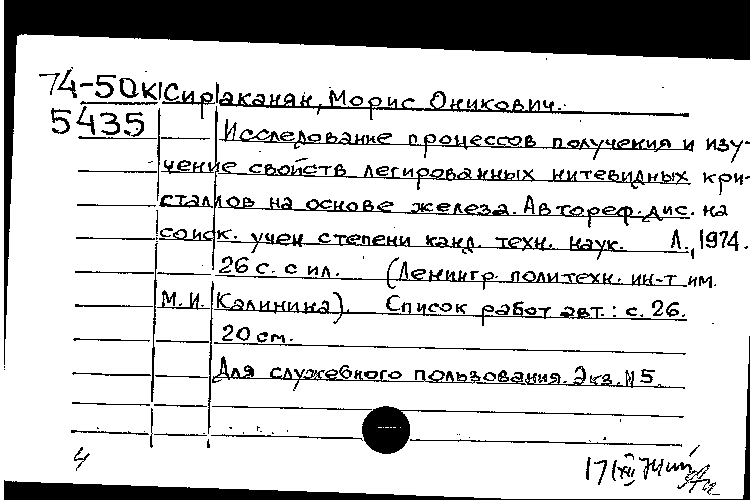 74-5ДК Сираканян, Морис Оникович.
5435 Исследование процессов получения и изу-
чение свойств легированных нитевидных кри-
сталлов на основе железа. Автореф. дис. на
соиск. учен степени канд. техн. наук. Л., 1974.
26 с. с ил. (Ленингр. политехн. ин-т им.
М.И. Калинина). Список работ авт.: с. 26.
20 см.
Для служебного пользования. Экз. № 5.
4 17/XII 74